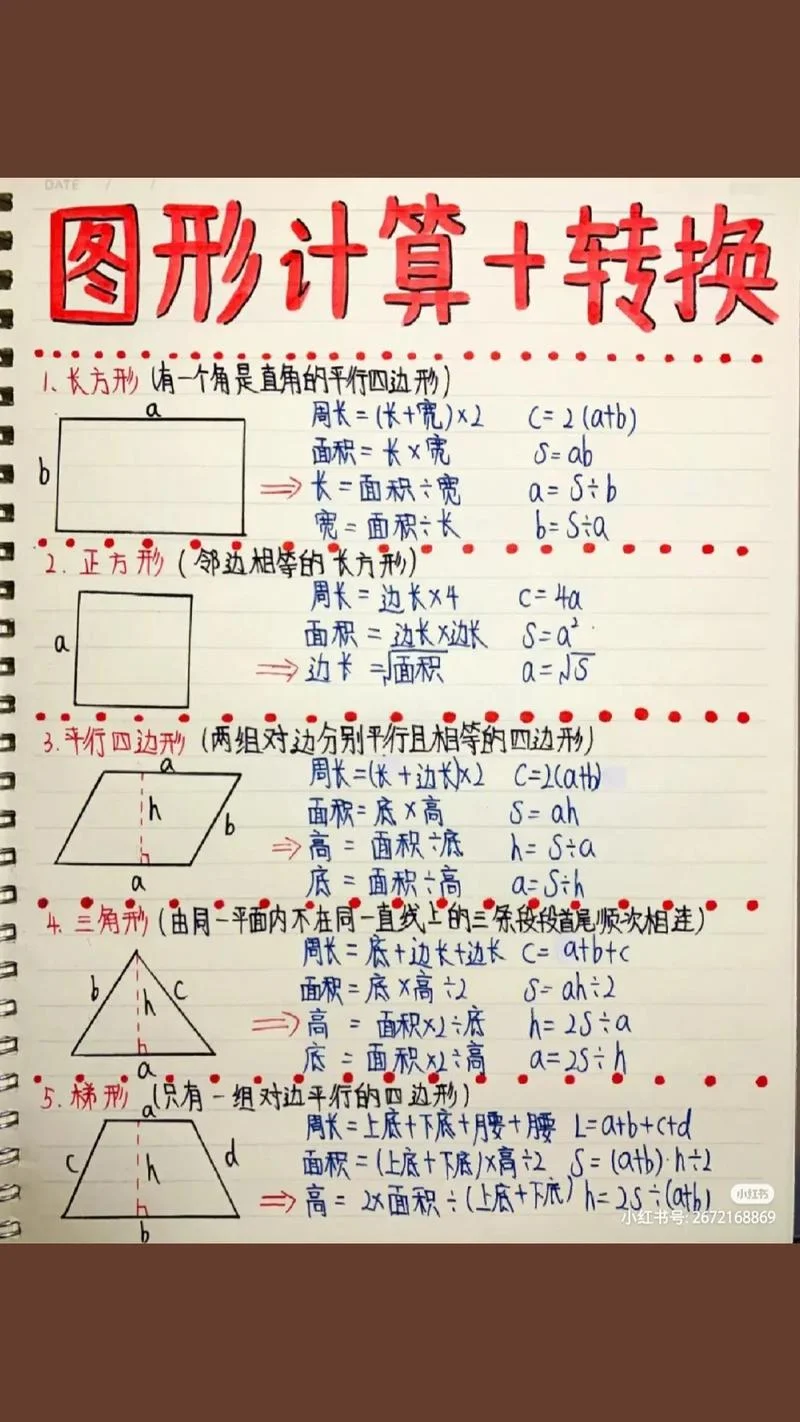 DATE / /
图形计算+转换
1、长方形(有一个角是直角的平行四边形)
a
周长=(长+宽)×2 C=2(a+b)
面积=长×宽 S=ab
b
⇒长=面积÷宽 a=S÷b
宽=面积÷长 b=S÷a
2.正方形(邻边相等的长方形)
周长=边长×4 C=4a
a
面积=边长×边长 S=a²
⇒边长=√面积 a=√S
3.平行四边形(两组对边分别平行且相等的四边形)
a
周长=(长+边长)×2 C=2(a+b)
h
面积=底×高 S=ah
b
⇒高=面积÷底 h=S÷a
a
底=面积÷高 a=S÷h
4.三角形(由同一平面内不在同一直线上的三条段段首尾顺次相连)
周长=底+边长+边长 C=a+b+c
b h c
面积=底×高÷2 S=ah÷2
⇒高=面积×2÷底 h=2S÷a
a
底=面积×2÷高 a=2S÷h
5.梯形(只有一组对边平行的四边形)
a
周长=上底+下底+腰+腰 L=a+b+c+d
c h d
面积=(上底+下底)×高÷2 S=(a+b)·h÷2
⇒高=2×面积÷(上底+下底) h=2S÷(a+b)
b
小红书
小红书号: 2672168869